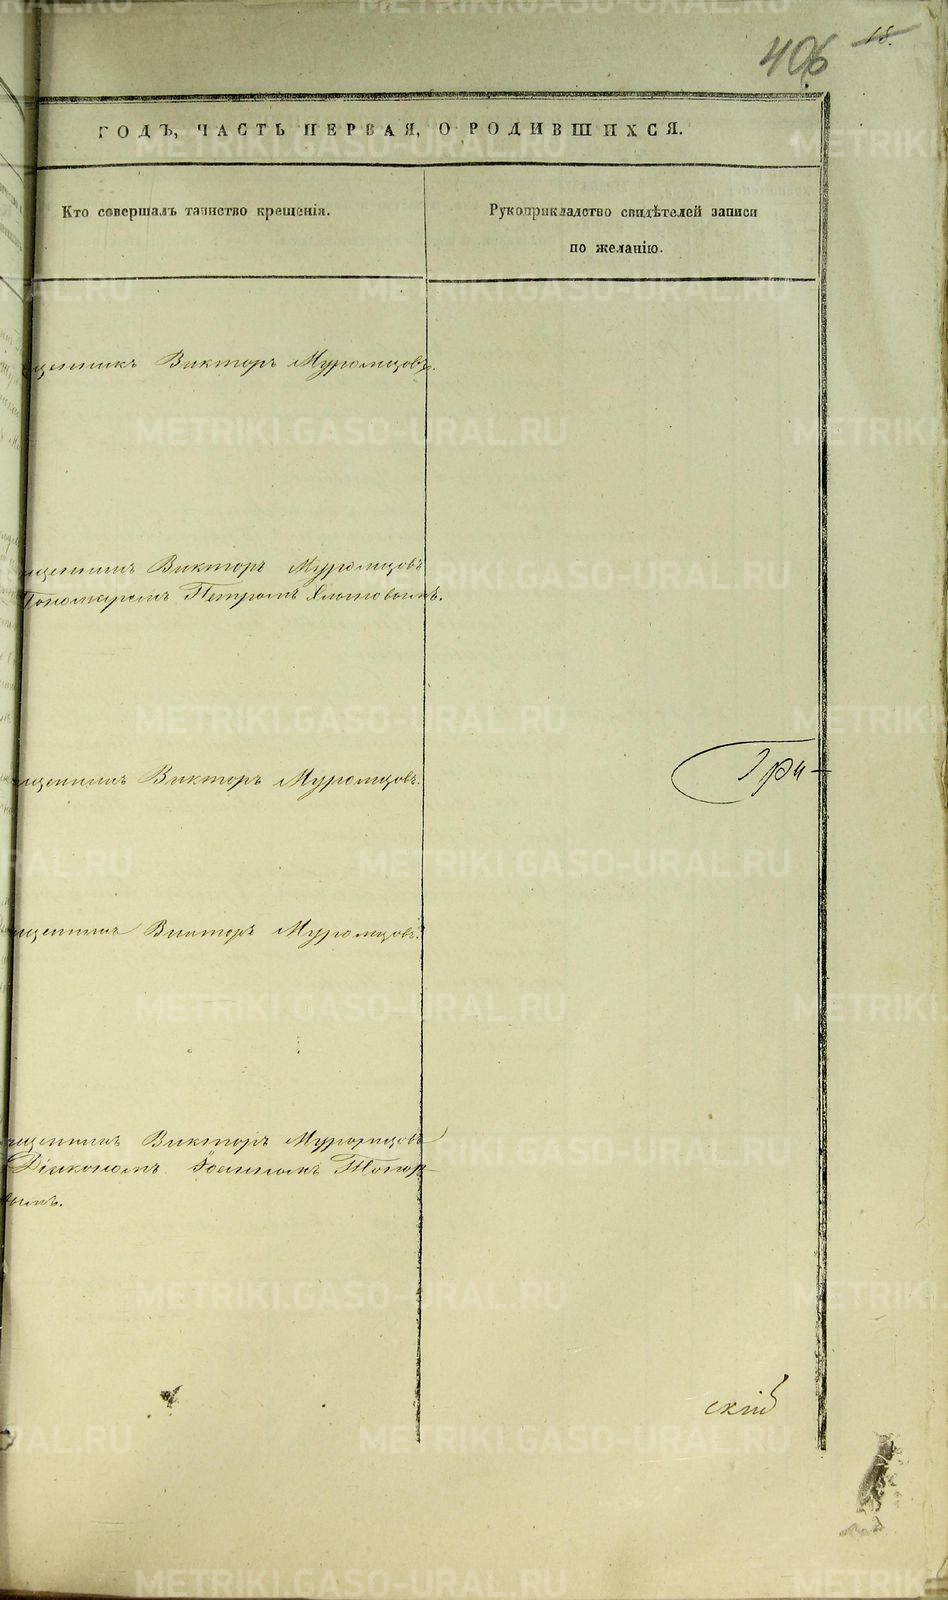 406 18.
ГОДЪ, ЧАСТЬ ПЕРВАЯ, О РОДИВШИХСЯ.
Кто совершалъ таинство крещенія.
Рукоприкладство свидѣтелей записи
по желанію.
щенникъ Викторъ Муромцовъ.
щенникъ Викторъ Муромцовъ
Пономаремъ Петромъ
щенникъ Викторъ Муромцовъ.
Гри-
щенникъ Викторъ Муромцовъ.
щенникъ Викторъ Муромцовъ
Діакономъ Іоанномъ Топор-
вымъ.
скій
METRIKI.GASO-URAL.RU